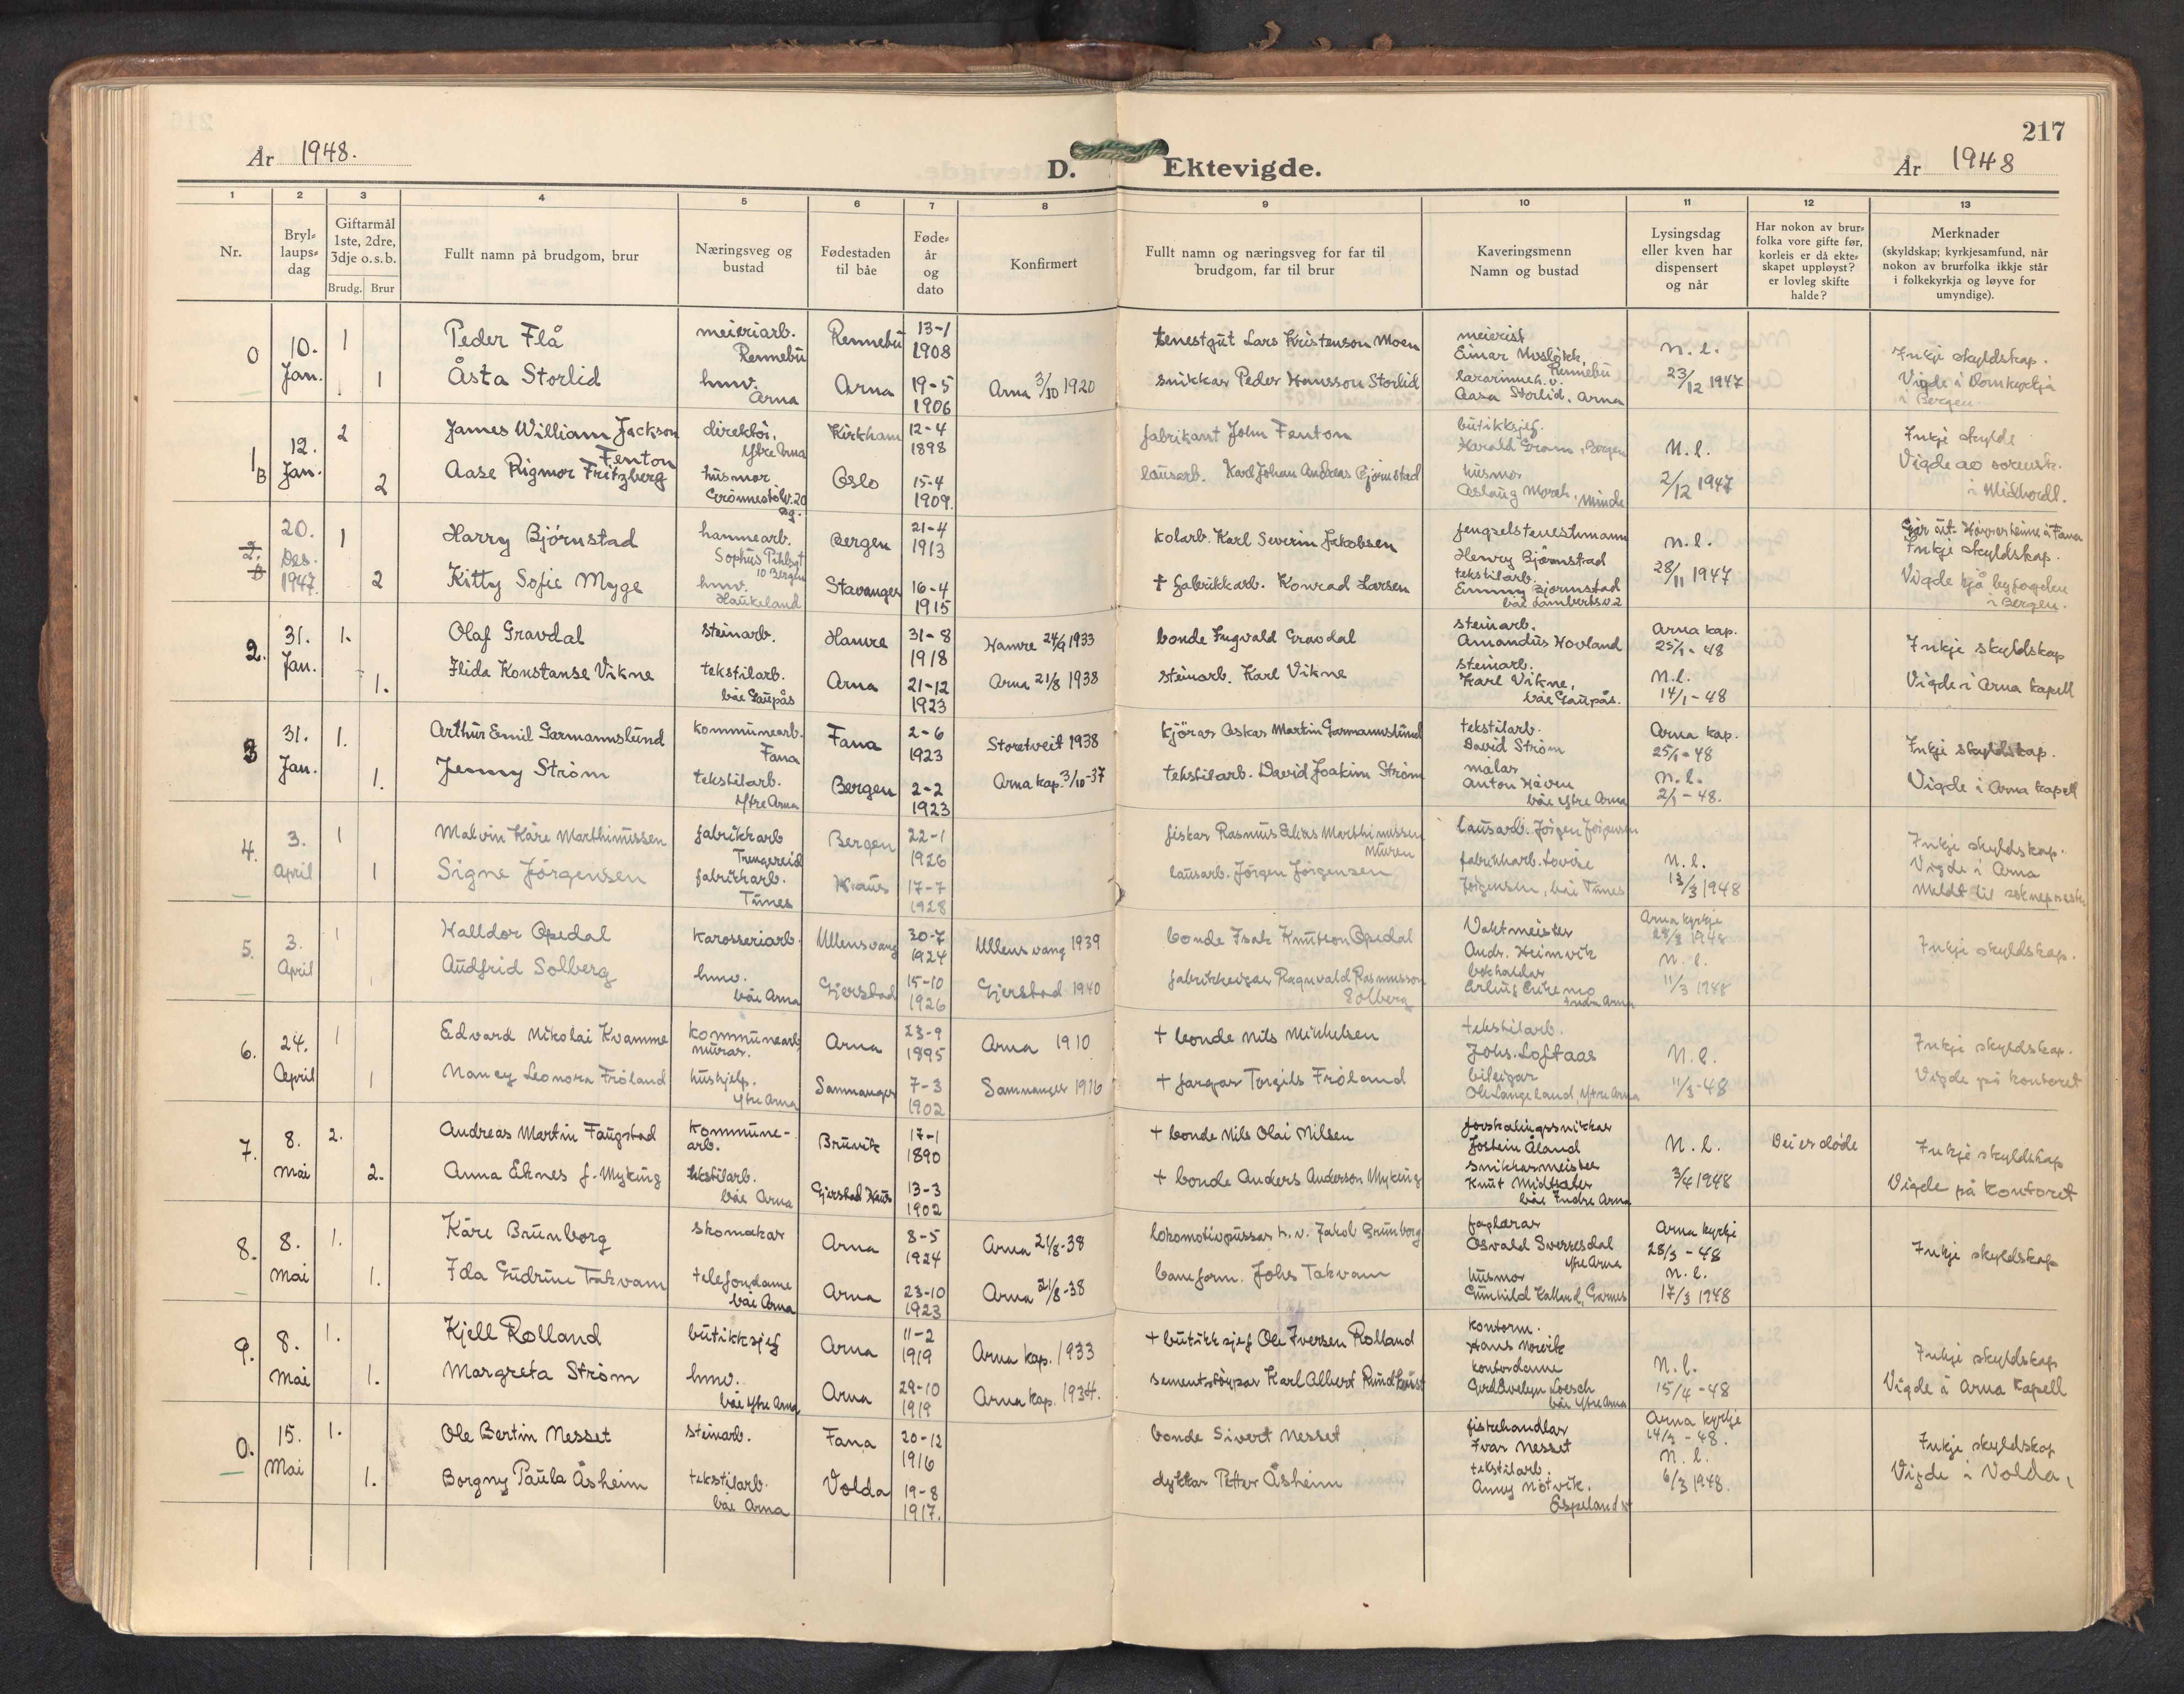 217
År 1948.
D. Ektevigde.
År 1948
1 2 3 4 5 6 7 8 9 10 11 12 13
Nr.
Bryl-
laups-
dag
Giftarmål
1ste, 2dre,
3dje o.s.b.
Brudg. Brur
Fullt namn på brudgom, brur
Næringsveg og
bustad
Fødestaden
til båe
Føde-
år
og
dato
Konfirmert
Fullt namn og næringsveg for far til
brudgom, far til brur
Kaveringsmenn
Namn og bustad
Lysingsdag
eller kven har
dispensert
og når
Har nokon av brur-
folka vore gifte før,
korleis er då ekte-
skapet uppløyst?
er lovleg skifte
halde?
Merknader
(skyldskap; kyrkjesamfund, når
nokon av brurfolka ikkje står
i folkekyrkja og løyve for
umyndige).
0
10.
Jan.
1
Peder Flå
meieriarb.
Rennebu
Rennebu
13-1
1908
tenestgut Lars Kristenson Moen
meierist
Einar Mosløkk,
Rennebu
n. l.
23/12 1947
Inkje skyldskap.
Vigde i Domkyrkja
i Bergen.
1
Åsta Storlid
hmv.
Arna
Arna
19-5
1906
Arna 3/10 1920
snikkar Peder Hansson Storlid
lærarinneh.v.
Aasa Storlid, Arna
1
B
12.
Jan.
2
James William Jackson
Fenton
direktör,
Ytre Arna
Kirkham
12-4
1898
fabrikant John Fenton
butikksjef.
Harald Gram, Bergen
N. l.
2/12 1947
Inkje skylde
Vigde av sorensk.
i Midhordl.
2
Aase Rigmor Fritzberg
husmor
Grönnestölv. 20
Bg.
Oslo
15-4
1909.
lausarb. Karl Johan Andreas Bjørnstad
husmor
Aslaug Morch, Minde
2.
B
20.
Des.
1947.
1
Harry Bjørnstad
hammearb.
10 Bergen
Bergen
21-4
1913
kolarb. Karl Severin Jakobsen
fengselstenestmann
Henry Bjørnstad
n. l.
28/11 1947
Inkje skyldskap.
Vigde hjå byfogden
i Bergen.
2
Kitty Sofie Myge
hmv.
Haukeland
Stavanger
16-4
1915
† fabrikkarb. Konrad Larsen
tekstilarb.
Emmy Bjørnstad
båe Lambertsv. 2
2.
31.
Jan.
1.
Olaf Gravdal
steinarb.
Hamre
31-8
1918
Hamre 24/9 1933
bonde Ingvald Gravdal
steinarb.
Amandus Hovland
Arna kap.
25/1 - 48
Inkje skyldskap
Vigde i Arna kapell
1.
Ilida Konstanse Vikne
tekstilarb.
båe Gaupås
Arna
21-12
1923
Arna 21/8 1938
steinarb. Karl Vikne
steinarb.
Karl Vikne,
båe Gaupås.
n.l.
14/1 - 48
3
31.
Jan.
1.
Arthur Emil Garmannslund
kommunearb.
Fana
Fana
2-6
1923
Storetveit 1938
kjörar Oskar Martin Garmannslund
tekstilarb.
David Strøm
Arna kap.
25/1 - 48
Inkje skyldskap.
Vigde i Arna kapell
1.
Jenny Strøm
tekstilarb.
Ytre Arna
Bergen
2-2
1923
Arna kap. 3/10-37
tekstilarb. David Joakim Strøm
målar
Anton Håven
båe Ytre Arna
n. l.
2/1 - 48.
4.
3.
April
1
Malvin Kåre Marthinussen
fabrikkarb
Trengereid
Bergen
22-1
1926
fiskar Rasmus Elias Marthinussen
Muren
lausarb. Jörgen Jörgensen
n. l.
13/3 1948
Inkje skyldskap.
Vigde i Arna
Meldt til soknepresten
1
Signe Jörgensen
fabrikkarb.
Tunes
Haus
17-7
1928
lausarb. Jörgen Jörgensen
fabrikkarb. Lovise
Jörgensen, båe Tunes
5.
3.
April
1
Halldor Opedal
karosseriarb.
Ullensvang
30-7
1924
Ullensvang 1939
bonde Isak Knutson Opedal
Vaktmeister
Andr. Heimvik
Arna kyrkje
28/3 1948
Inkje skyldskap.
1
Audfrid Solberg
hmv.
båe Arna
Gjerstad
15-10
1926
Gjerstad 1940
fabrikkeigar Ragnvald Rasmusson
Solberg
bokhaldar
Indre Arna
n. l.
11/3 1948
6.
24.
April
1
Edvard Nikolai Kvamme
kommunearb,
murar.
Arna
23-9
1895
Arna 1910
† bonde Nils Mikkelsen
tekstilarb.
Johs. Loftaas
N. l.
11/3-48
Inkje skyldskap.
Vigde på kontoret
1
Nancy Leonora Fröland
hushjelp.
Ytre Arna
Samnanger
7-3
1902
Samnanger 1916
† fargar Torgils Fröland
bileigar
Ole Langeland, Ytre Arna
7.
8.
Mai
2.
Andreas Martin Faugstad
kommune-
arb.
Bruvik
17-1
1890
† bonde Nils Olai Nilsen
forskalingssnikkar
Jostein Åland
N. l.
3/4 1948
Dei er døde
Inkje skyldskap
Vigde på kontoret
2.
Anna Eknes f. Myking
tekstilarb.
båe Arna
Gjerstad Haus
13-3
1902
† bonde Anders Anderson Myking
snikkarmeister
Knut Midtsæter
båe Indre Arna
8.
8.
Mai
1.
Kåre Brunborg
skomakar
Arna
8-5
1924
Arna 21/8-38
lokomotivpussar h.v. Jakob Brunborg
faglærar
Osvald Sverresdal
Ytre Arna
Arna kyrkje
28/3 - 48
Inkje skyldskap
1.
Ida Gudrun Takvam
telefondame
båe Arna
Arna
23-10
1923
Arna 21/8-38
baneform. Johs Takvam
husmor
Gunhild Kalland, Garnes
n. l.
17/3 1948
9.
8.
Mai
1.
Kjell Rolland
butikksjef
Arna
11-2
1919
Arna kap. 1933
† butikksjef Ole Iversen Rolland
kontorm.
Hans Norvik
n. l.
15/4 - 48
Inkje skyldskap
Vigde i Arna Kapell
1.
Margreta Strøm
hmv.
båe Ytre Arna
Arna
29-10
1919
Arna kap. 1934.
sementstöypar Karl Albert Rundhaust
kontordame
Gerd Evelyn Loesch
båe Ytre Arna
0.
15.
Mai
1.
Ole Bertin Nesset
steinarb.
Fana
20-12
1916
bonde Sivert Nesset
fiskehandlar
Ivar Nesset
Arna kyrkje
14/3 - 48.
Inkje skyldskap
Vigde i Volda,
1.
Borgny Paula Åsheim
tekstilarb.
båe Arna
Volda
19-8
1917.
dykkar Petter Åsheim
tekstilarb.
Anny Nötvik.
Espeland
n. l.
6/3 1948.